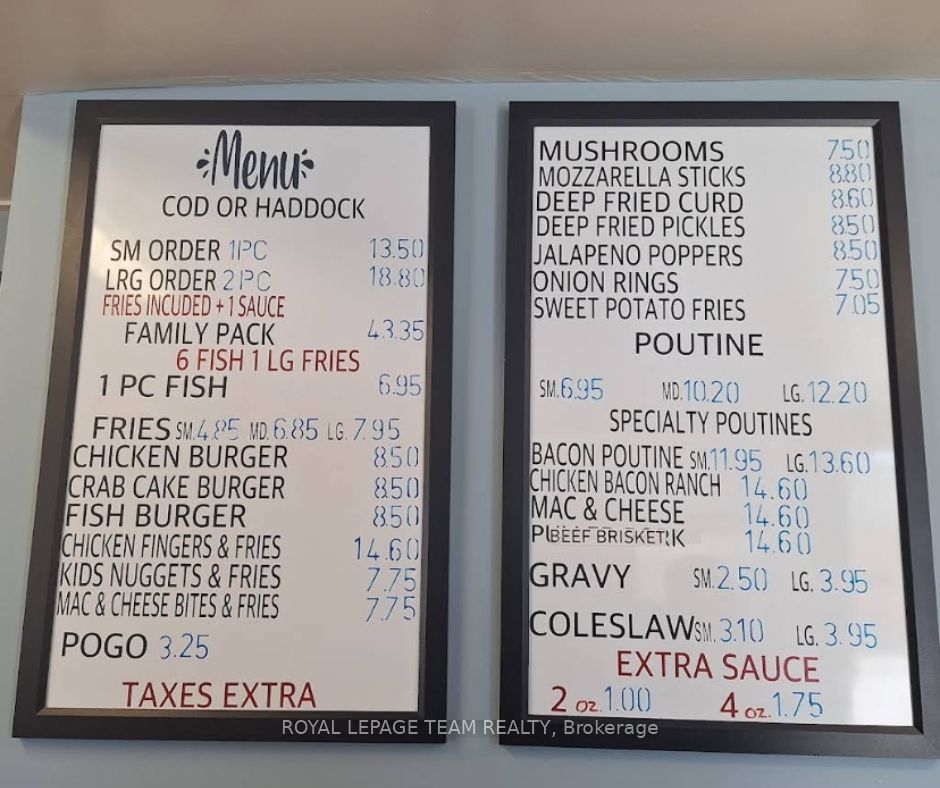 Menu
COD OR HADDOCK
SM ORDER 1PC 13.50
LRG ORDER 2 PC 18.80
FRIES INCLUDED + 1 SAUCE
FAMILY PACK 43.35
6 FISH 1 LG FRIES
1 PC FISH 6.95
FRIES SM. 4.85 MD. 6.85 LG. 7.95
CHICKEN BURGER 8.50
CRAB CAKE BURGER 8.50
FISH BURGER 8.50
CHICKEN FINGERS & FRIES 14.60
KIDS NUGGETS & FRIES 7.75
MAC & CHEESE BITES & FRIES 7.75
POGO 3.25
TAXES EXTRA
MUSHROOMS 7.50
MOZZARELLA STICKS 8.80
DEEP FRIED CURD 8.60
DEEP FRIED PICKLES 8.50
JALAPENO POPPERS 8.50
ONION RINGS 7.50
SWEET POTATO FRIES 7.05
POUTINE
SM. 6.95 MD. 10.20 LG. 12.20
SPECIALTY POUTINES
BACON POUTINE SM. 11.95 LG. 13.60
CHICKEN BACON RANCH 14.60
MAC & CHEESE 14.60
BEEF BRISKET 14.60
GRAVY SM. 2.50 LG. 3.95
COLESLAW SM. 3.10 LG. 3.95
EXTRA SAUCE
2 oz. 1.00 4 oz. 1.75
ROYAL LEPAGE TEAM REALTY, Brokerage